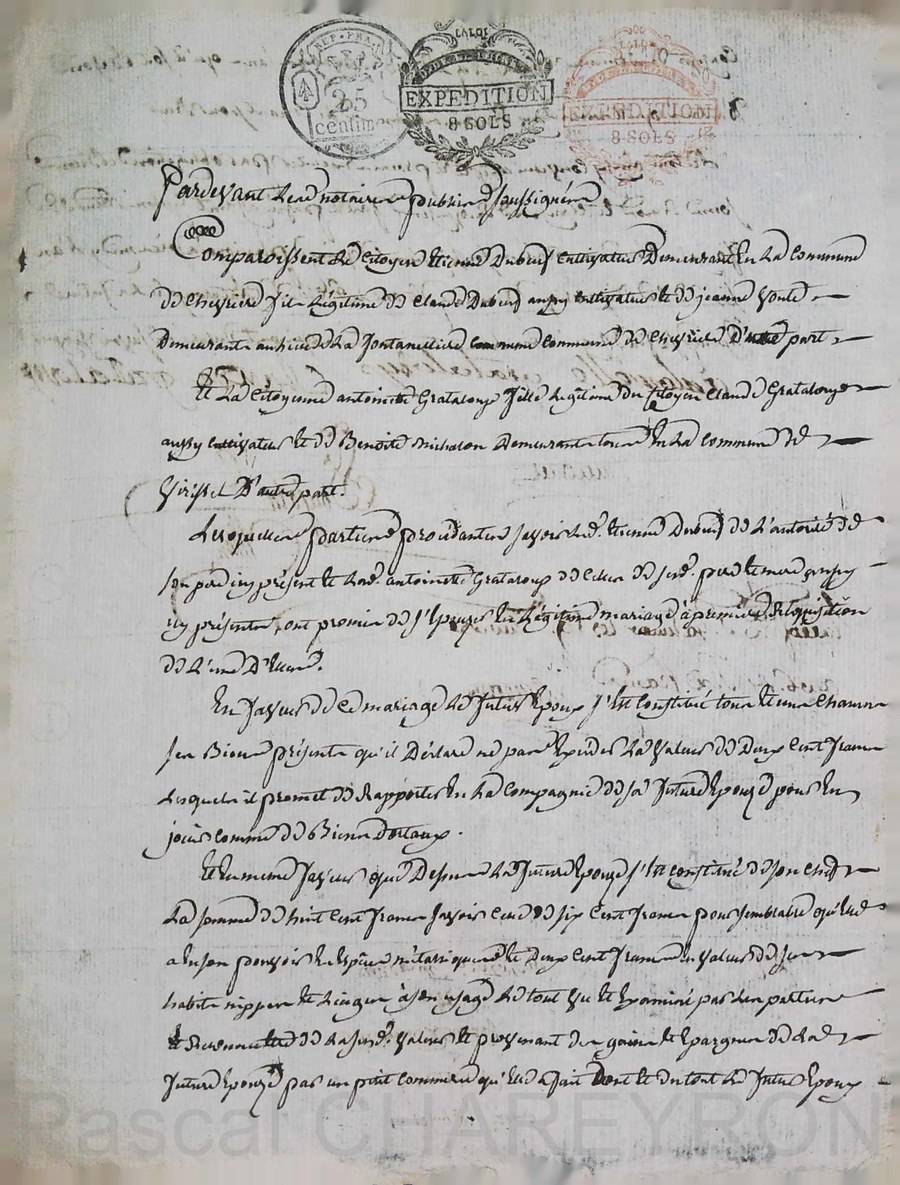 REP. FRA.
25
centim
CALOE
EXPEDITION
8 SOLS
EXPEDITION
8 SOLS
Pardevant Les notaires publics soussignés
Comparoissent Le Citoyen Etienne Dubeuf Cultivateur Demeurant En La Commune
de Chevriere fils Légitime de Claude Dubeuf aussy cultivateur Et de jeanne
Demeurants au lieu de La fontanilliere commune de Chevriere D'une part
Et La Citoyenne antoinette Grataloup fille Légitime du Citoyen Claude Grataloup
aussy cultivateur Et de Benoite michalon Demeurants tous En La commune de
Virissel D'autre part.
Lesquelles parties procédantes sçavoir Led. Etienne Dubeuf de L'autorité de
son pere icy présent Et Lad. antoinette Grataloup de celle de sesd. pere Et mere aussy
icy présents, ont promis de s'Epouser En Légitime mariage à premiere Réquisition
de L'une D'Elles.
En faveur de ce mariage Le futur Epoux s'Est Constitué tous Et uns Chacuns
ses Biens présents qu'il Déclare ne pas Excéder La valeur de Deux Cent francs
Lesquels il promet de Rapporter En La Compagnie de sa future Epouse pour En
jouir comme de Biens Dotaux.
Et En meme faveur que Dessus La future Epouse s'Est Constitué de son chef
La somme de huit Cent francs sçavoir celle de six Cent francs pour semblable qu'Elle
a En son pouvoir En Espèces métaliques Et Deux Cent francs En valeur de ses
habits nippes Et Linges à son usage Le tout vu Et Examiné par Les parties
Et Reconnu Etre de Lasusd. valeur Et provenant des gains Et Epargnes de La de
future Epouse par un petit commerce qu'Elle a fait Dont Et du tout Le futur Epoux
Pascal CHAREYRON